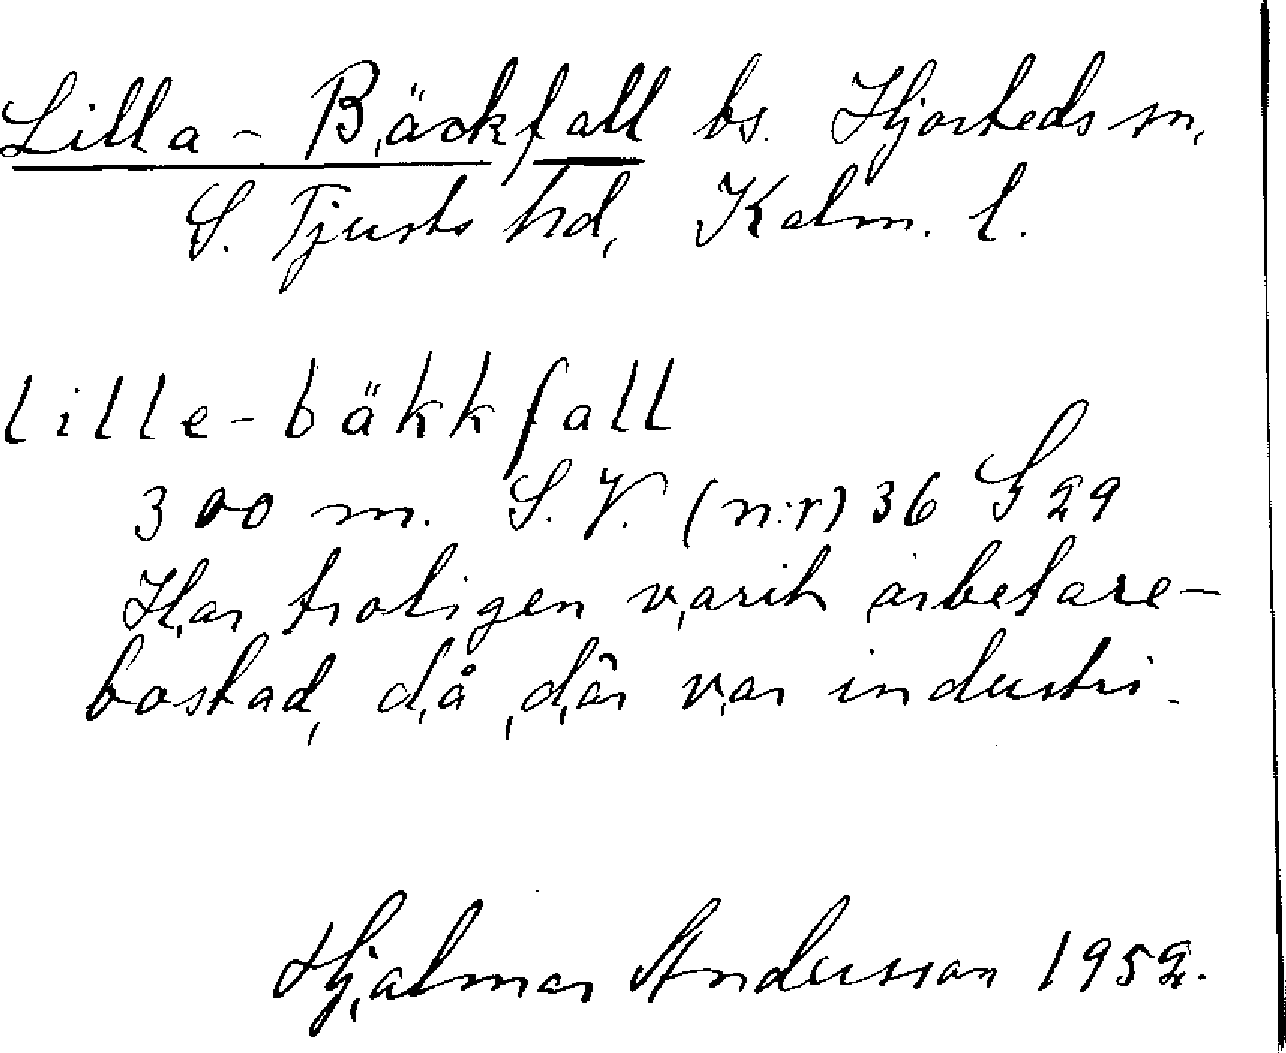 Lilla-Bäckfall bs. Hjorteds sn,
S. Tjusts hd, Kalm. l.
lille-bäkkfall
300 m. S.V. (n:r) 36 S 29
Har troligen varit arbetare-
bostad, då där var industri.
Hjalmar Andersson 1952.